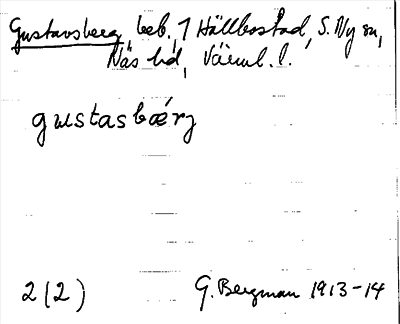 Gustavsberg beb. 1 Hällbostad, S. Ny sn,
Näs hd, Värml. l.
gustasbærj
2 (2) G. Bergman 1913-14